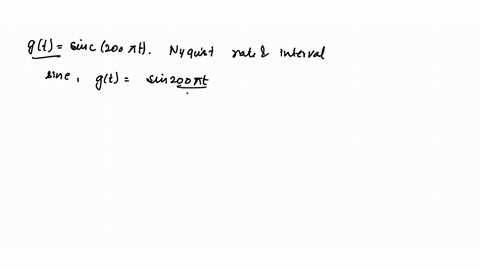 g(t) = sinc (200 πt). Nyquist rate & interval
sinc, g(t) = sin 200πt